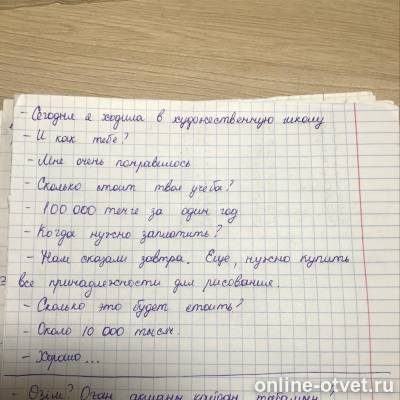 - Сегодня я ходила в художественную школу
- И как тебе?
- Мне очень понравилось
- Сколько стоит твоя учеба?
- 100 000 тенге за один год
- Когда нужно заплатить?
- Нам сказали завтра. Еще, нужно купить
все принадлежности для рисования.
- Сколько это будет стоить?
- Около 10 000 тысяч.
- Хорошо...
- Өзім? Оған ақшаны қайдан табамын?
online-otvet.ru